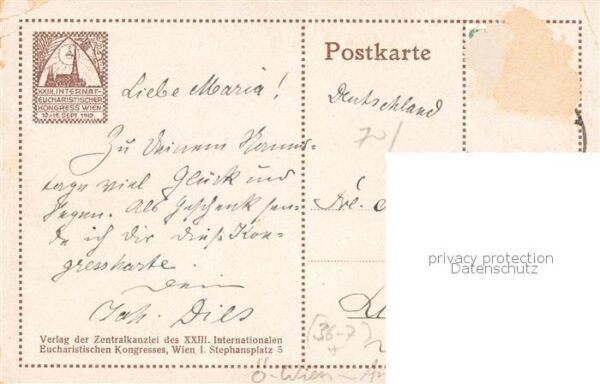 XXIII. INTERNAT.
EUCHARISTISCHER
KONGRESS WIEN
12.-15. SEPT. 1912.
Postkarte
Liebe Maria!
Zu Deinem Namens-
tage viel Glück und
Segen. Als Geschenk sen-
de ich Dir diese Kon-
gresskarte.
Dein
Joh. Dils
Deutschland
70/
Frl.
privacy protection
Datenschutz
[36-7]
Verlag der Zentralkanzlei des XXIII. Internationalen
Eucharistischen Kongresses, Wien I. Stephansplatz 5
Ö-Wien-